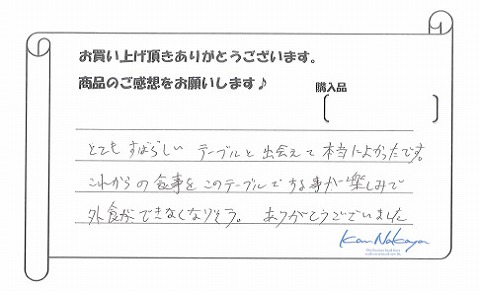 お買い上げ頂きありがとうございます。
商品のご感想をお願いします♪
購入品
とてもすばらしい テーブルと出会えて本当によかったです。
これからの食事をこのテーブルでする事が楽しみで
外食ができなくなりそう。 ありがとうございました
Kan Nakaya